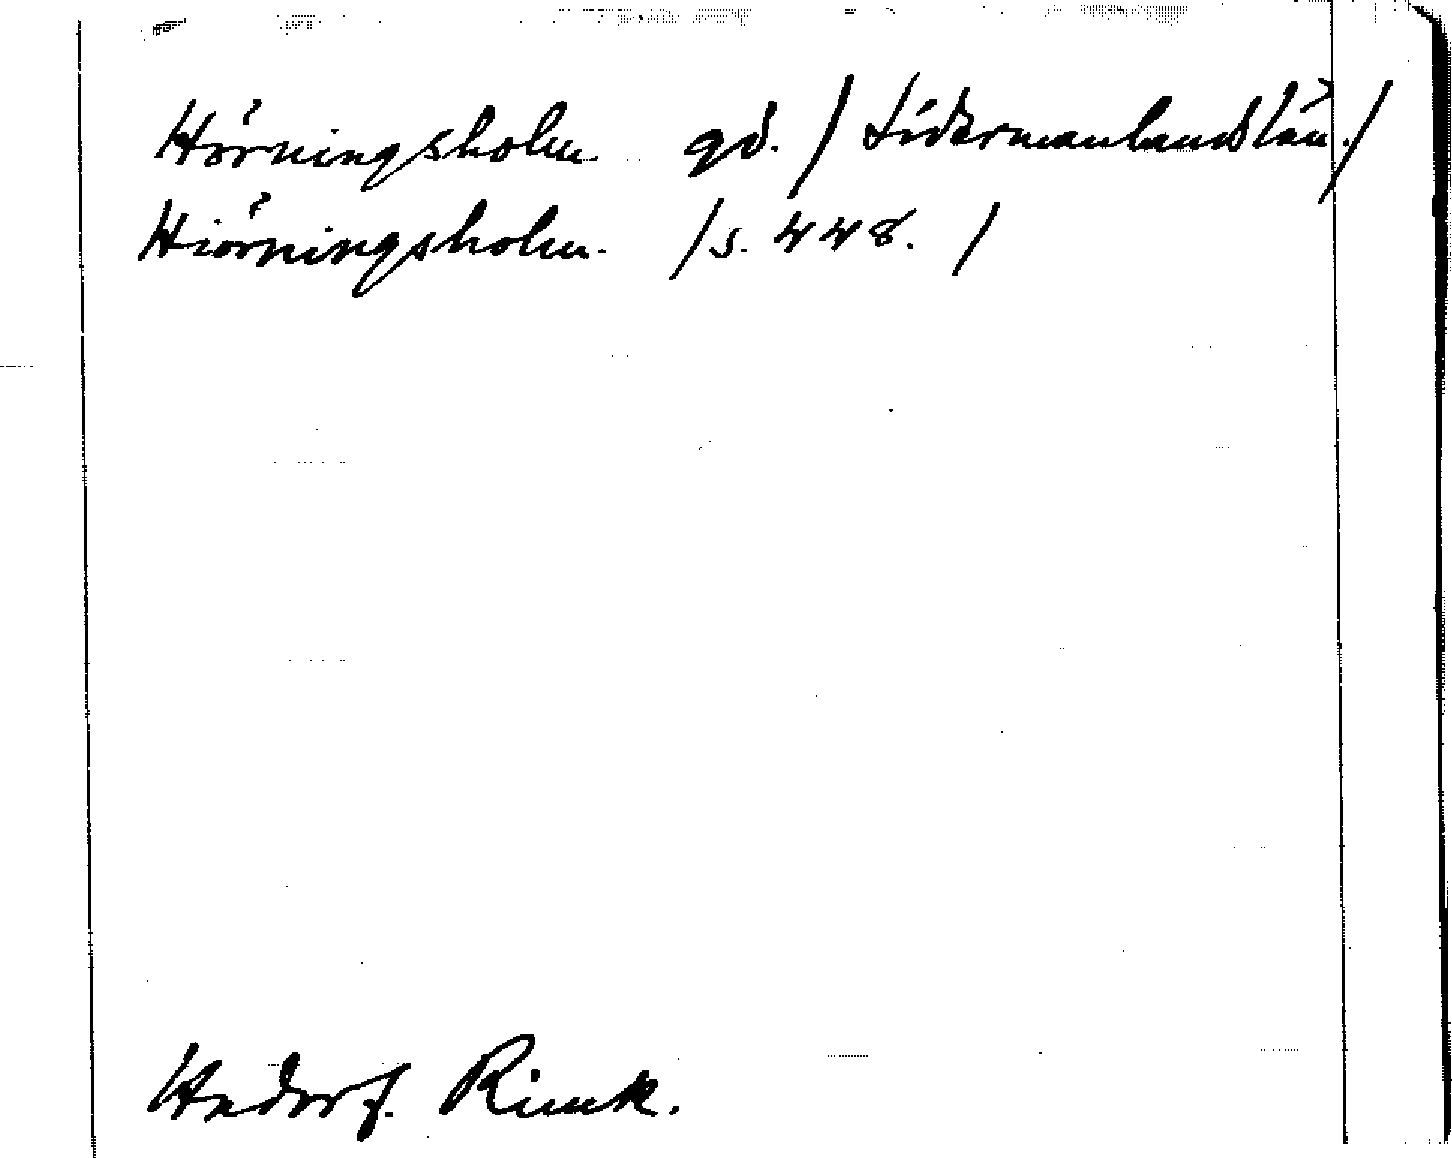 Hörningsholm gd. / Södermanlands län. /
Hiörningsholm. / s. 448. /
Hadorf. Rimk.